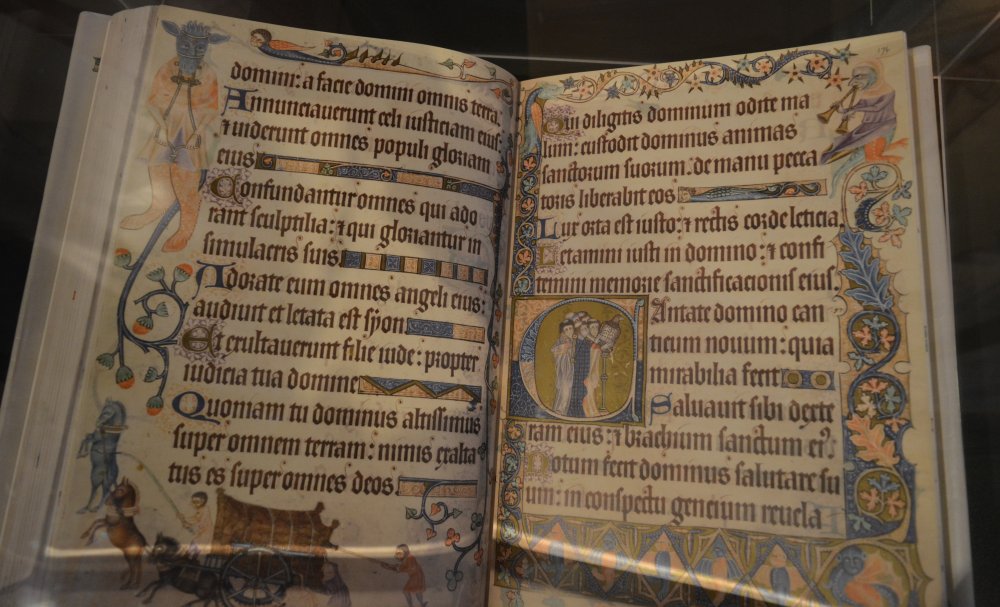 domini: a facie domini omnis terra.
Annunciauerunt celi iusticiam eius:
& uiderunt omnes populi gloriam
eius
Confundantur omnes qui ado
rant sculptilia: & qui gloriantur in
simulacris suis
Adorate eum omnes angeli eius:
audiuit et letata est syon
Et exultauerunt filie iude: propter
iudicia tua domine
Quoniam tu dominus altissimus
super omnem terram: nimis exalta
tus es super omnes deos.
176
Qui diligitis dominum odite ma
lum: custodit dominus animas
sanctorum suorum: de manu pecca
toris liberabit eos
Lux orta est iusto: & rectis corde leticia.
Letamini iusti in domino: & confi
temini memorie sanctificacionis eius.
Cantate domino can
ticum nouum: quia
mirabilia fecit
Saluauit sibi dexte
ram eius: & brachium sanctum eiꝰ
Notum fecit dominus salutare su
um: in conspectu gencium reuela